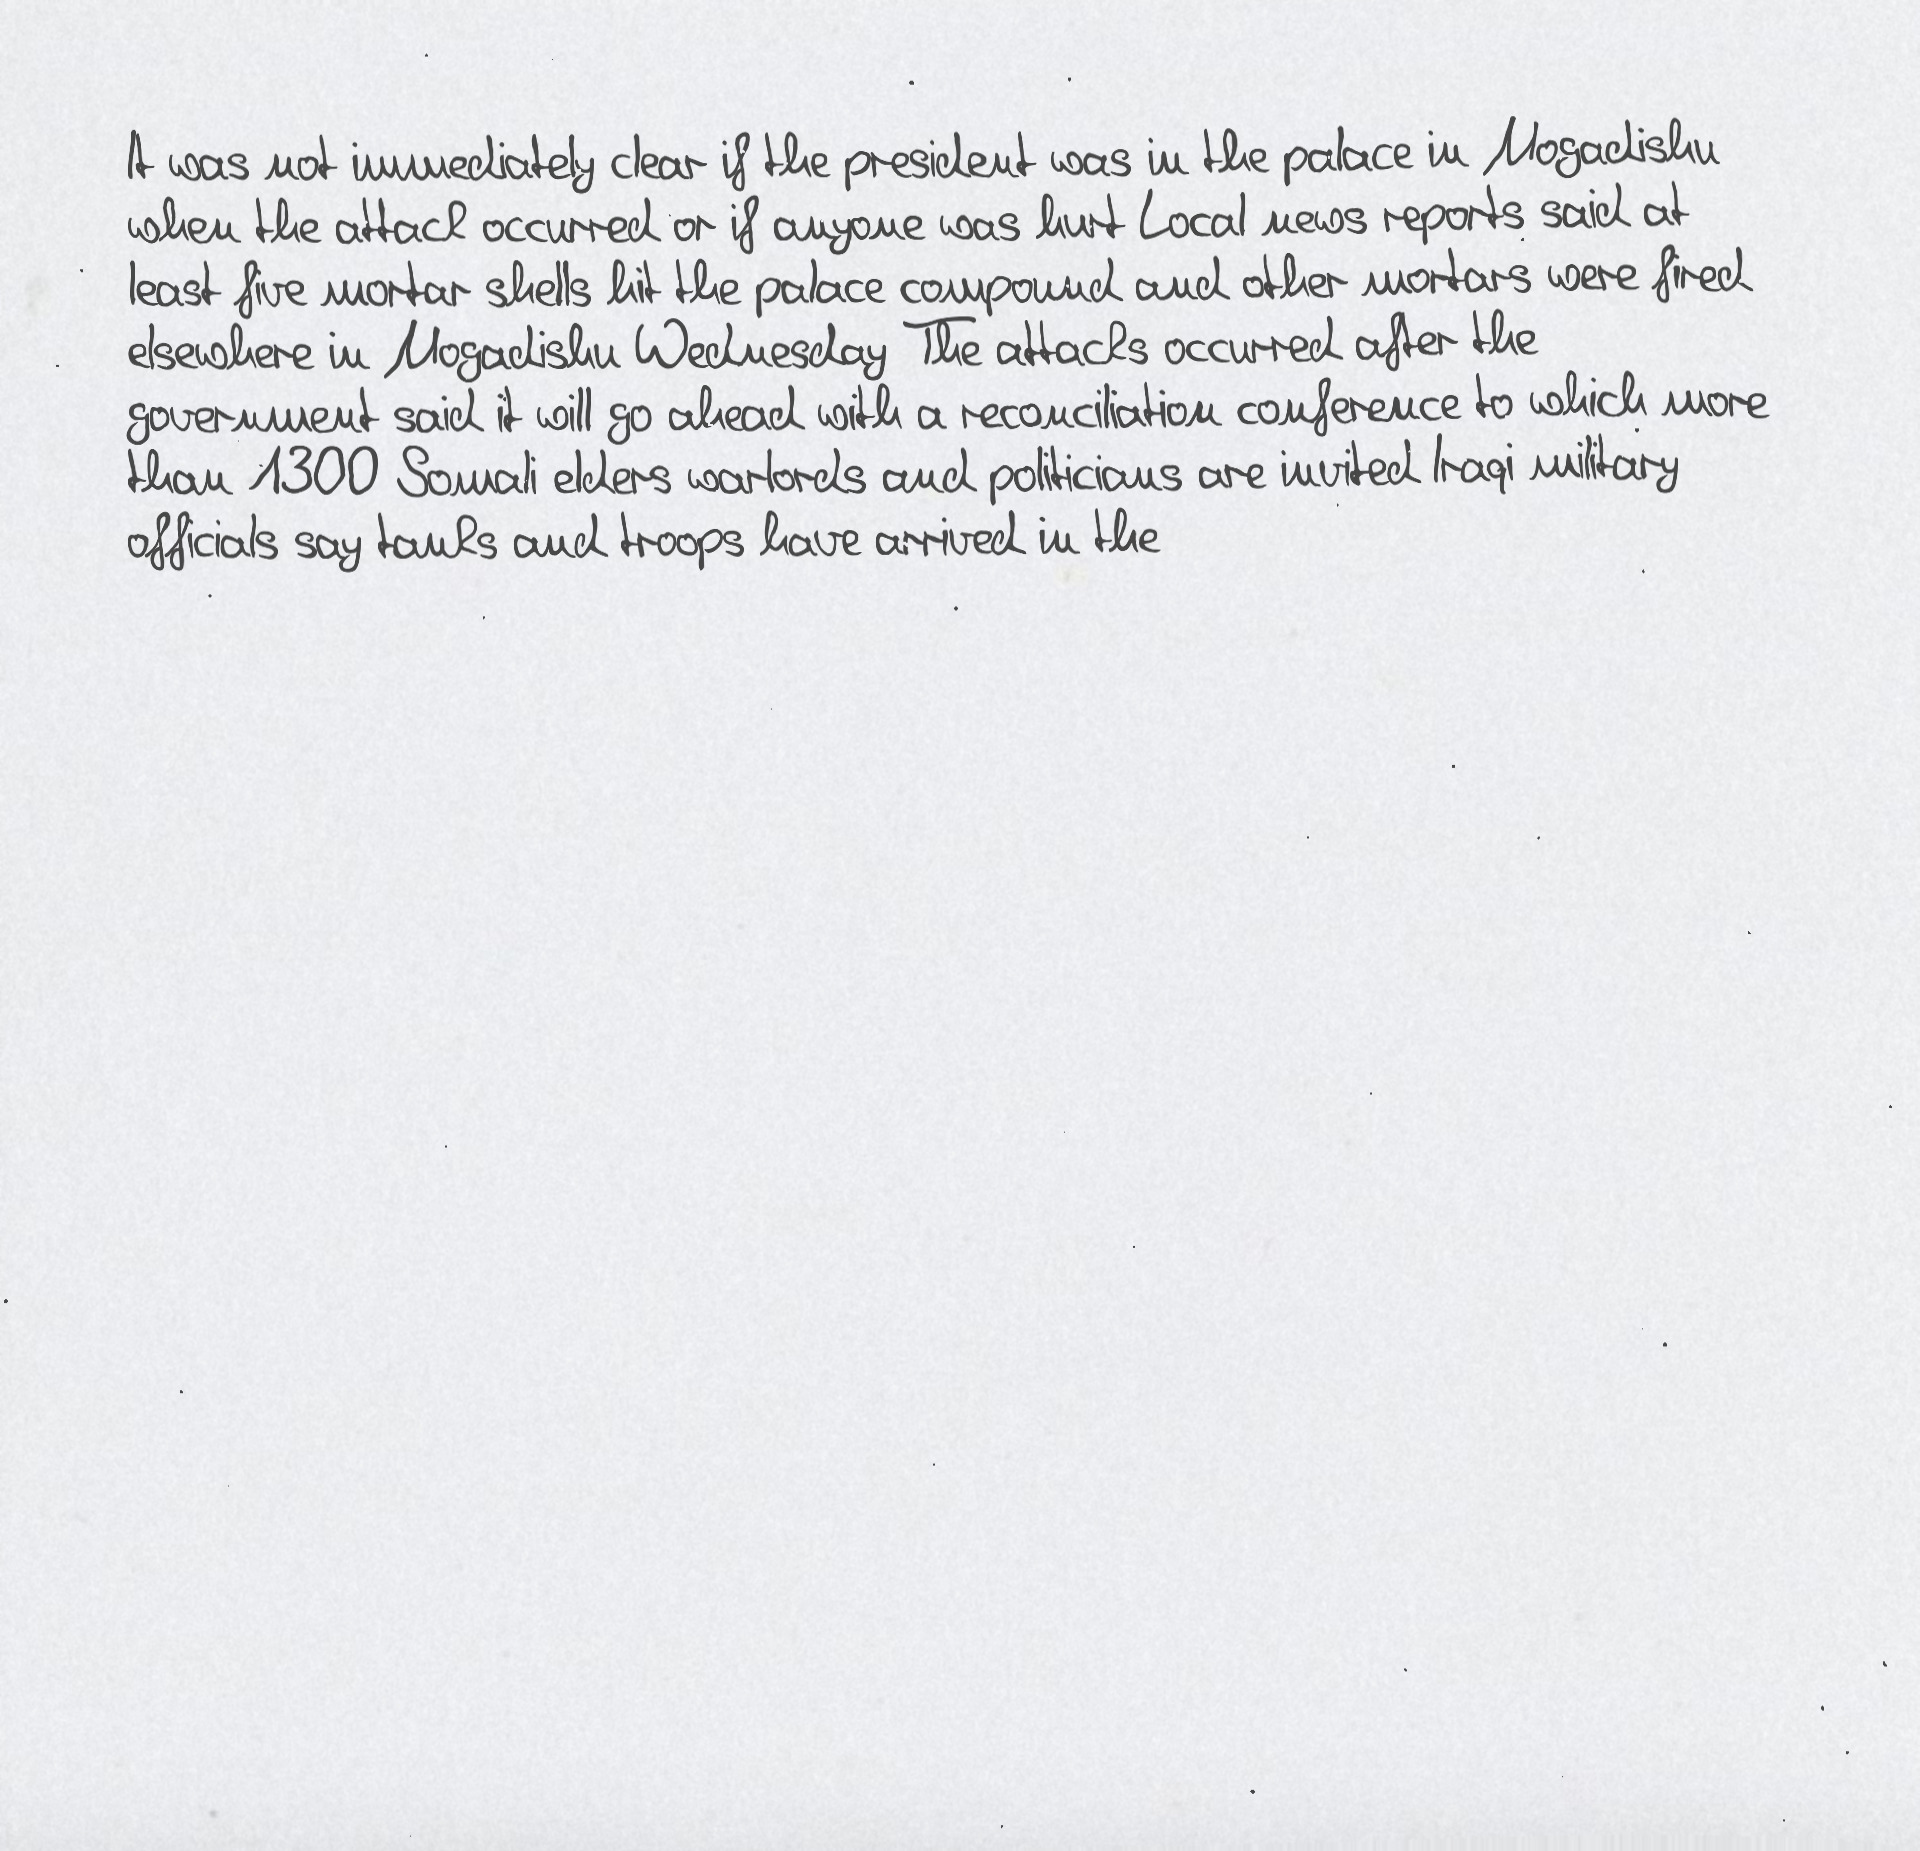 It was not immediately clear if the president was in the palace in Mogadishu
when the attack occurred or if anyone was hurt Local news reports said at
least five mortar shells hit the palace compound and other mortars were fired
elsewhere in Mogadishu Wednesday The attacks occurred after the
government said it will go ahead with a reconciliation conference to which more
than 1300 Somali elders warlords and politicians are invited Iraqi military
officials say tanks and troops have arrived in the